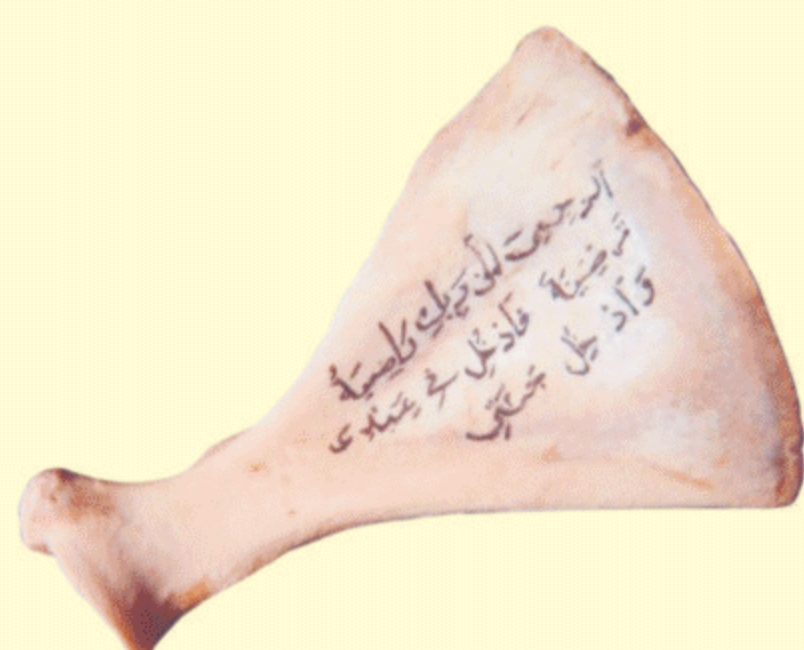 ارْجِعِي إلى رَبِّكِ رَاضِيَةً
مَّرْضِيَّةً فَادْخُلِي فِي عِبَٰدِى
وَادْخُلِي جَنَّتِي